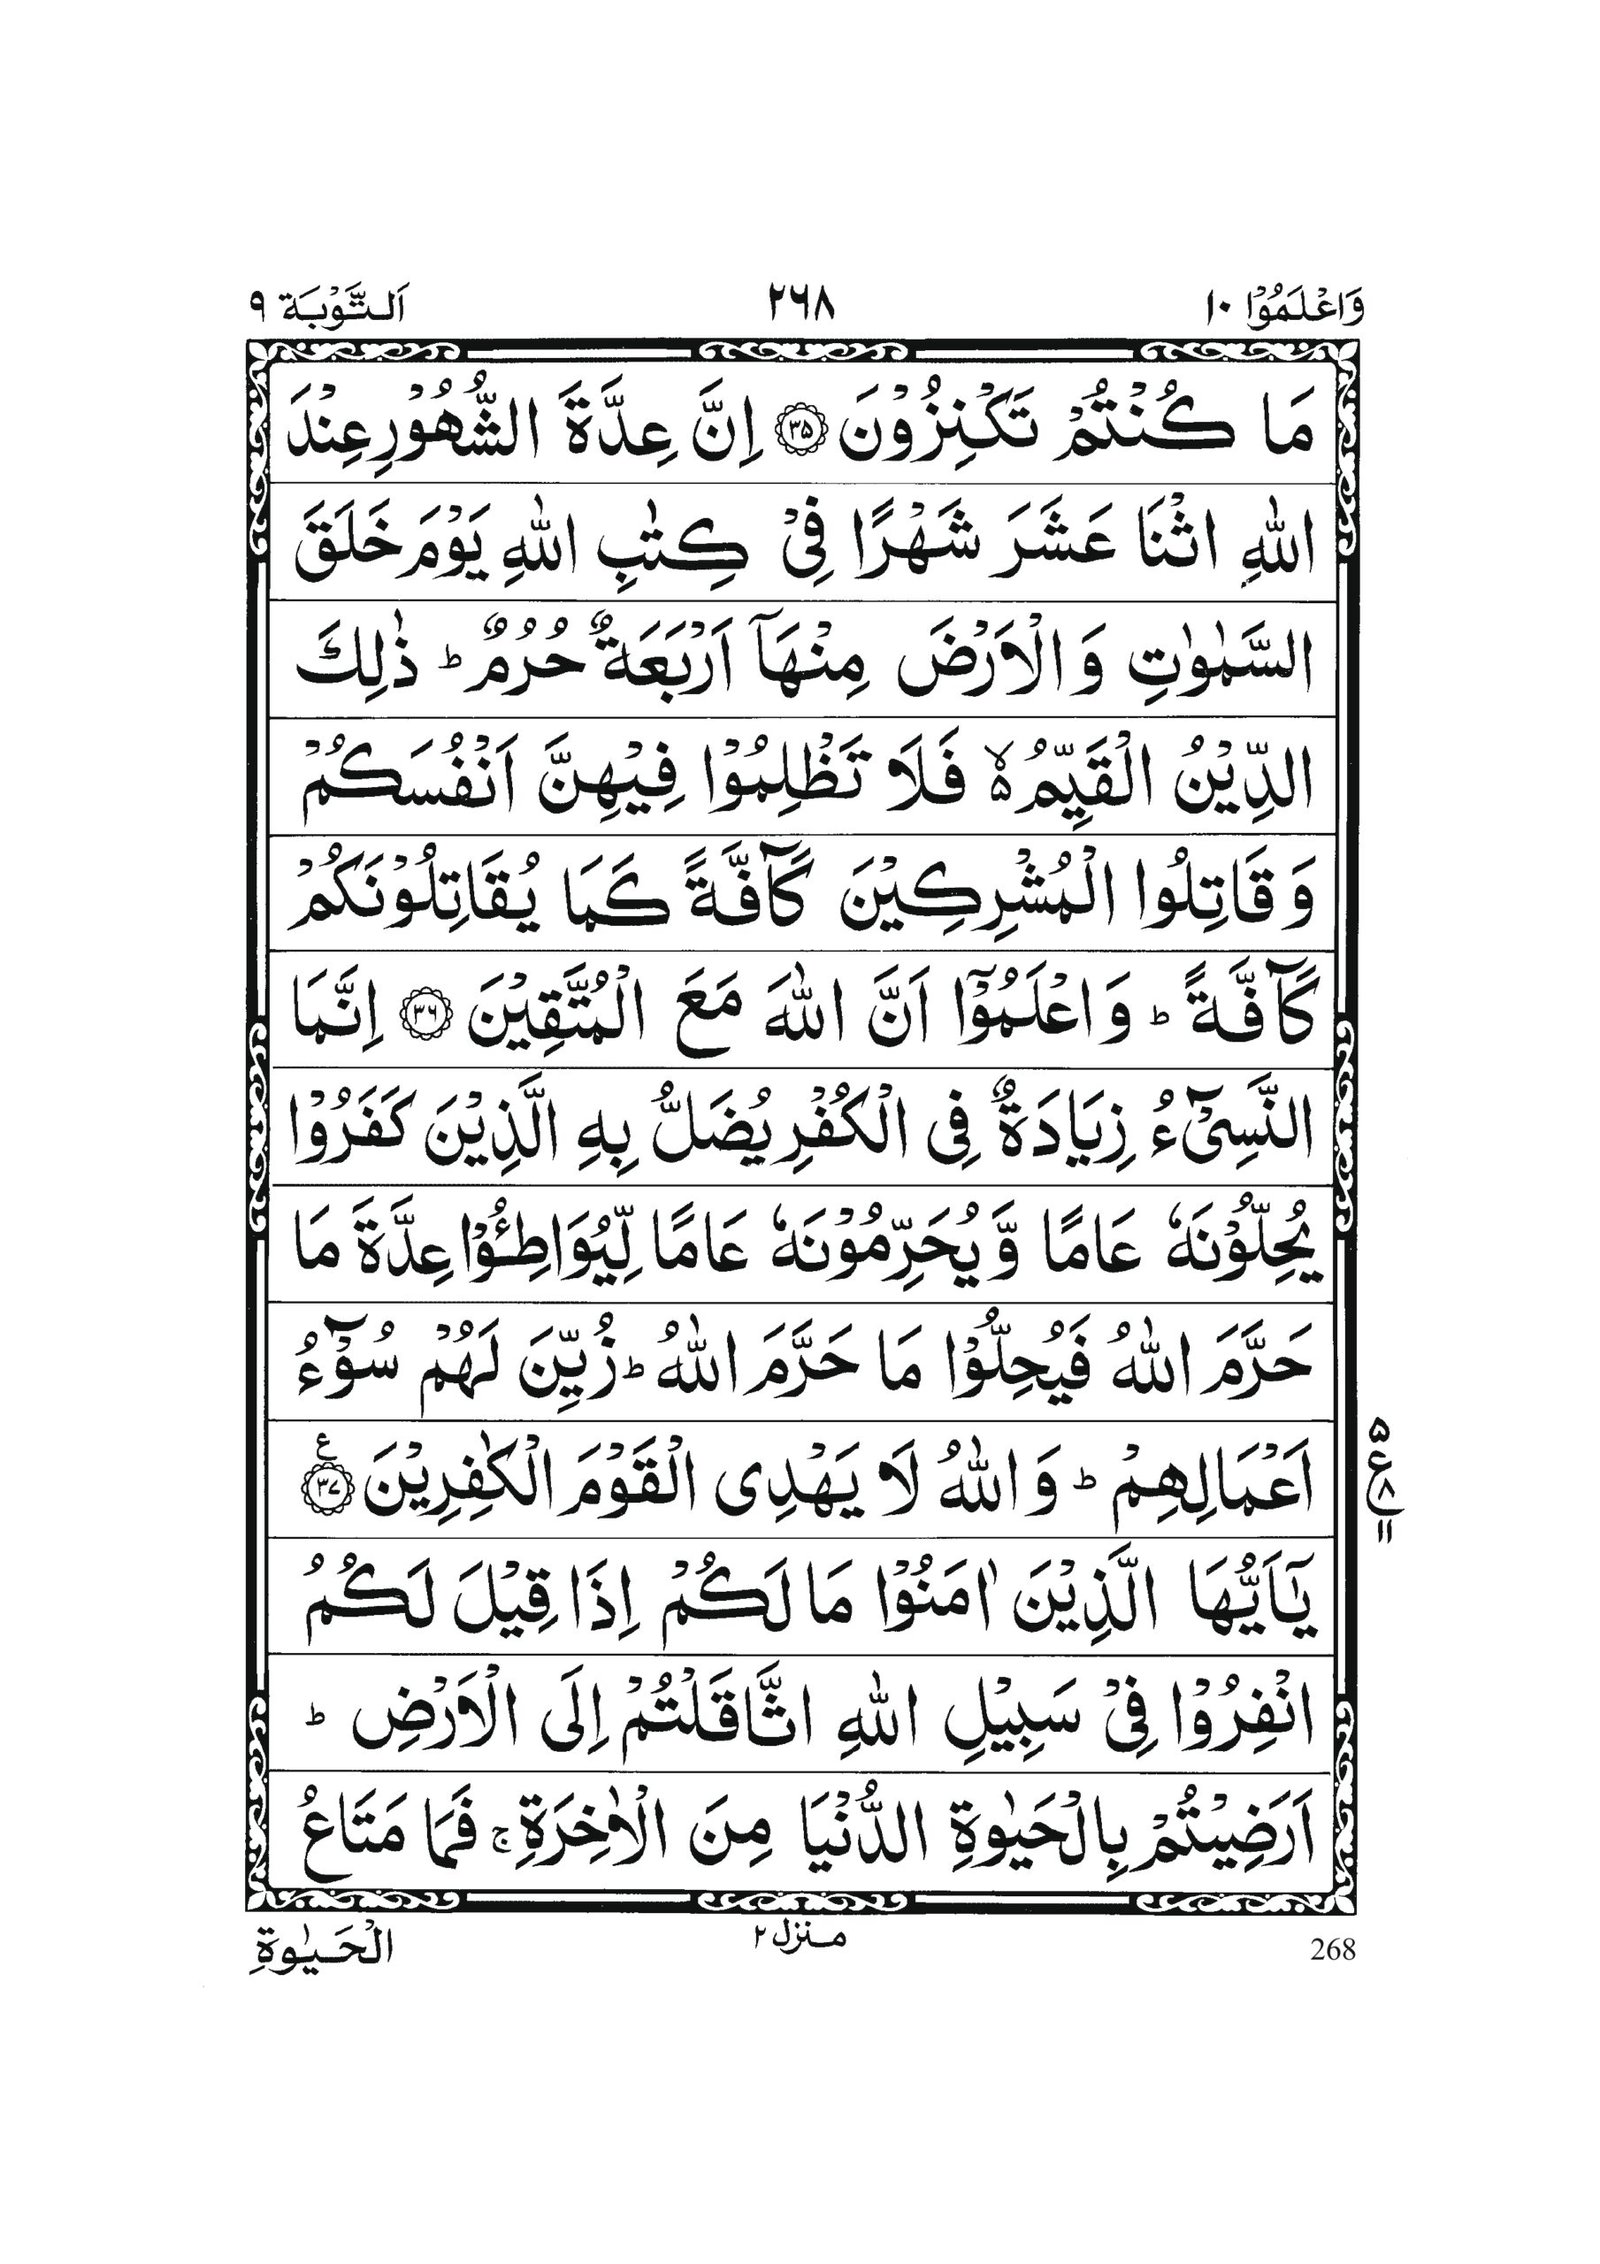 وَاعْلَمُوْۤا ۱۰ ۲۶۸ اَلتَّوْبَة ۹
مَا كُنْتُمْ تَكْنِزُوْنَ ۝۳۵ اِنَّ عِدَّةَ الشُّهُوْرِ عِنْدَ
اللّٰهِ اثْنَا عَشَرَ شَهْرًا فِیْ كِتٰبِ اللّٰهِ یَوْمَ خَلَقَ
السَّمٰوٰتِ وَالْاَرْضَ مِنْهَاۤ اَرْبَعَةٌ حُرُمٌ ؕ ذٰلِكَ
الدِّیْنُ الْقَیِّمُ ۙ۬ فَلَا تَظْلِمُوْا فِیْهِنَّ اَنْفُسَكُمْ
وَقَاتِلُوا الْمُشْرِكِیْنَ كَآفَّةً كَمَا یُقَاتِلُوْنَكُمْ
كَآفَّةً ؕ وَاعْلَمُوْۤا اَنَّ اللّٰهَ مَعَ الْمُتَّقِیْنَ ۝۳۶ اِنَّمَا
النَّسِیْٓءُ زِیَادَةٌ فِی الْكُفْرِ یُضَلُّ بِهِ الَّذِیْنَ كَفَرُوْا
یُحِلُّوْنَهٗ عَامًا وَّیُحَرِّمُوْنَهٗ عَامًا لِّیُوَاطِـُٔوْا عِدَّةَ مَا
حَرَّمَ اللّٰهُ فَیُحِلُّوْا مَا حَرَّمَ اللّٰهُ ؕ زُیِّنَ لَهُمْ سُوْٓءُ
اَعْمَالِهِمْ ؕ وَاللّٰهُ لَا یَهْدِی الْقَوْمَ الْكٰفِرِیْنَ ۝۳۷ ع
۵ ع ۸ ۱۱
یٰۤاَیُّهَا الَّذِیْنَ اٰمَنُوْا مَا لَكُمْ اِذَا قِیْلَ لَكُمُ
انْفِرُوْا فِیْ سَبِیْلِ اللّٰهِ اثَّاقَلْتُمْ اِلَی الْاَرْضِ ؕ
اَرَضِیْتُمْ بِالْحَیٰوةِ الدُّنْیَا مِنَ الْاٰخِرَةِ ۚ فَمَا مَتَاعُ
268 منزل ۲ الْحَیٰوةِ